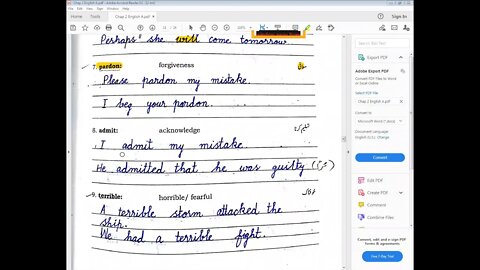 Chap 2 English A.pdf - Adobe Acrobat Reader DC
Sign In
Perhaps" she will come tomorrow.
7. pardon: forgiveness
Please pardon my mistake.
I beg your pardon.
8. admit: acknowledge
I admit my mistake
He admitted that he was guilty
9. terrible: horrible/ fearful
A terrible storm attacked the
ship.
We had a terrible fight.
Export PDF
Adobe Export PDF
Convert PDF Files to Word
or Excel Online
Select PDF File
Chap 2 English A.pdf
Convert to
Microsoft Word (*.docx)
Document Language:
English (U.S.) Change
Convert
Edit PDF
Create PDF
Comment
Combine Files
Convert, edit and e-sign PDF
forms & agreements
Free 7-Day Trial